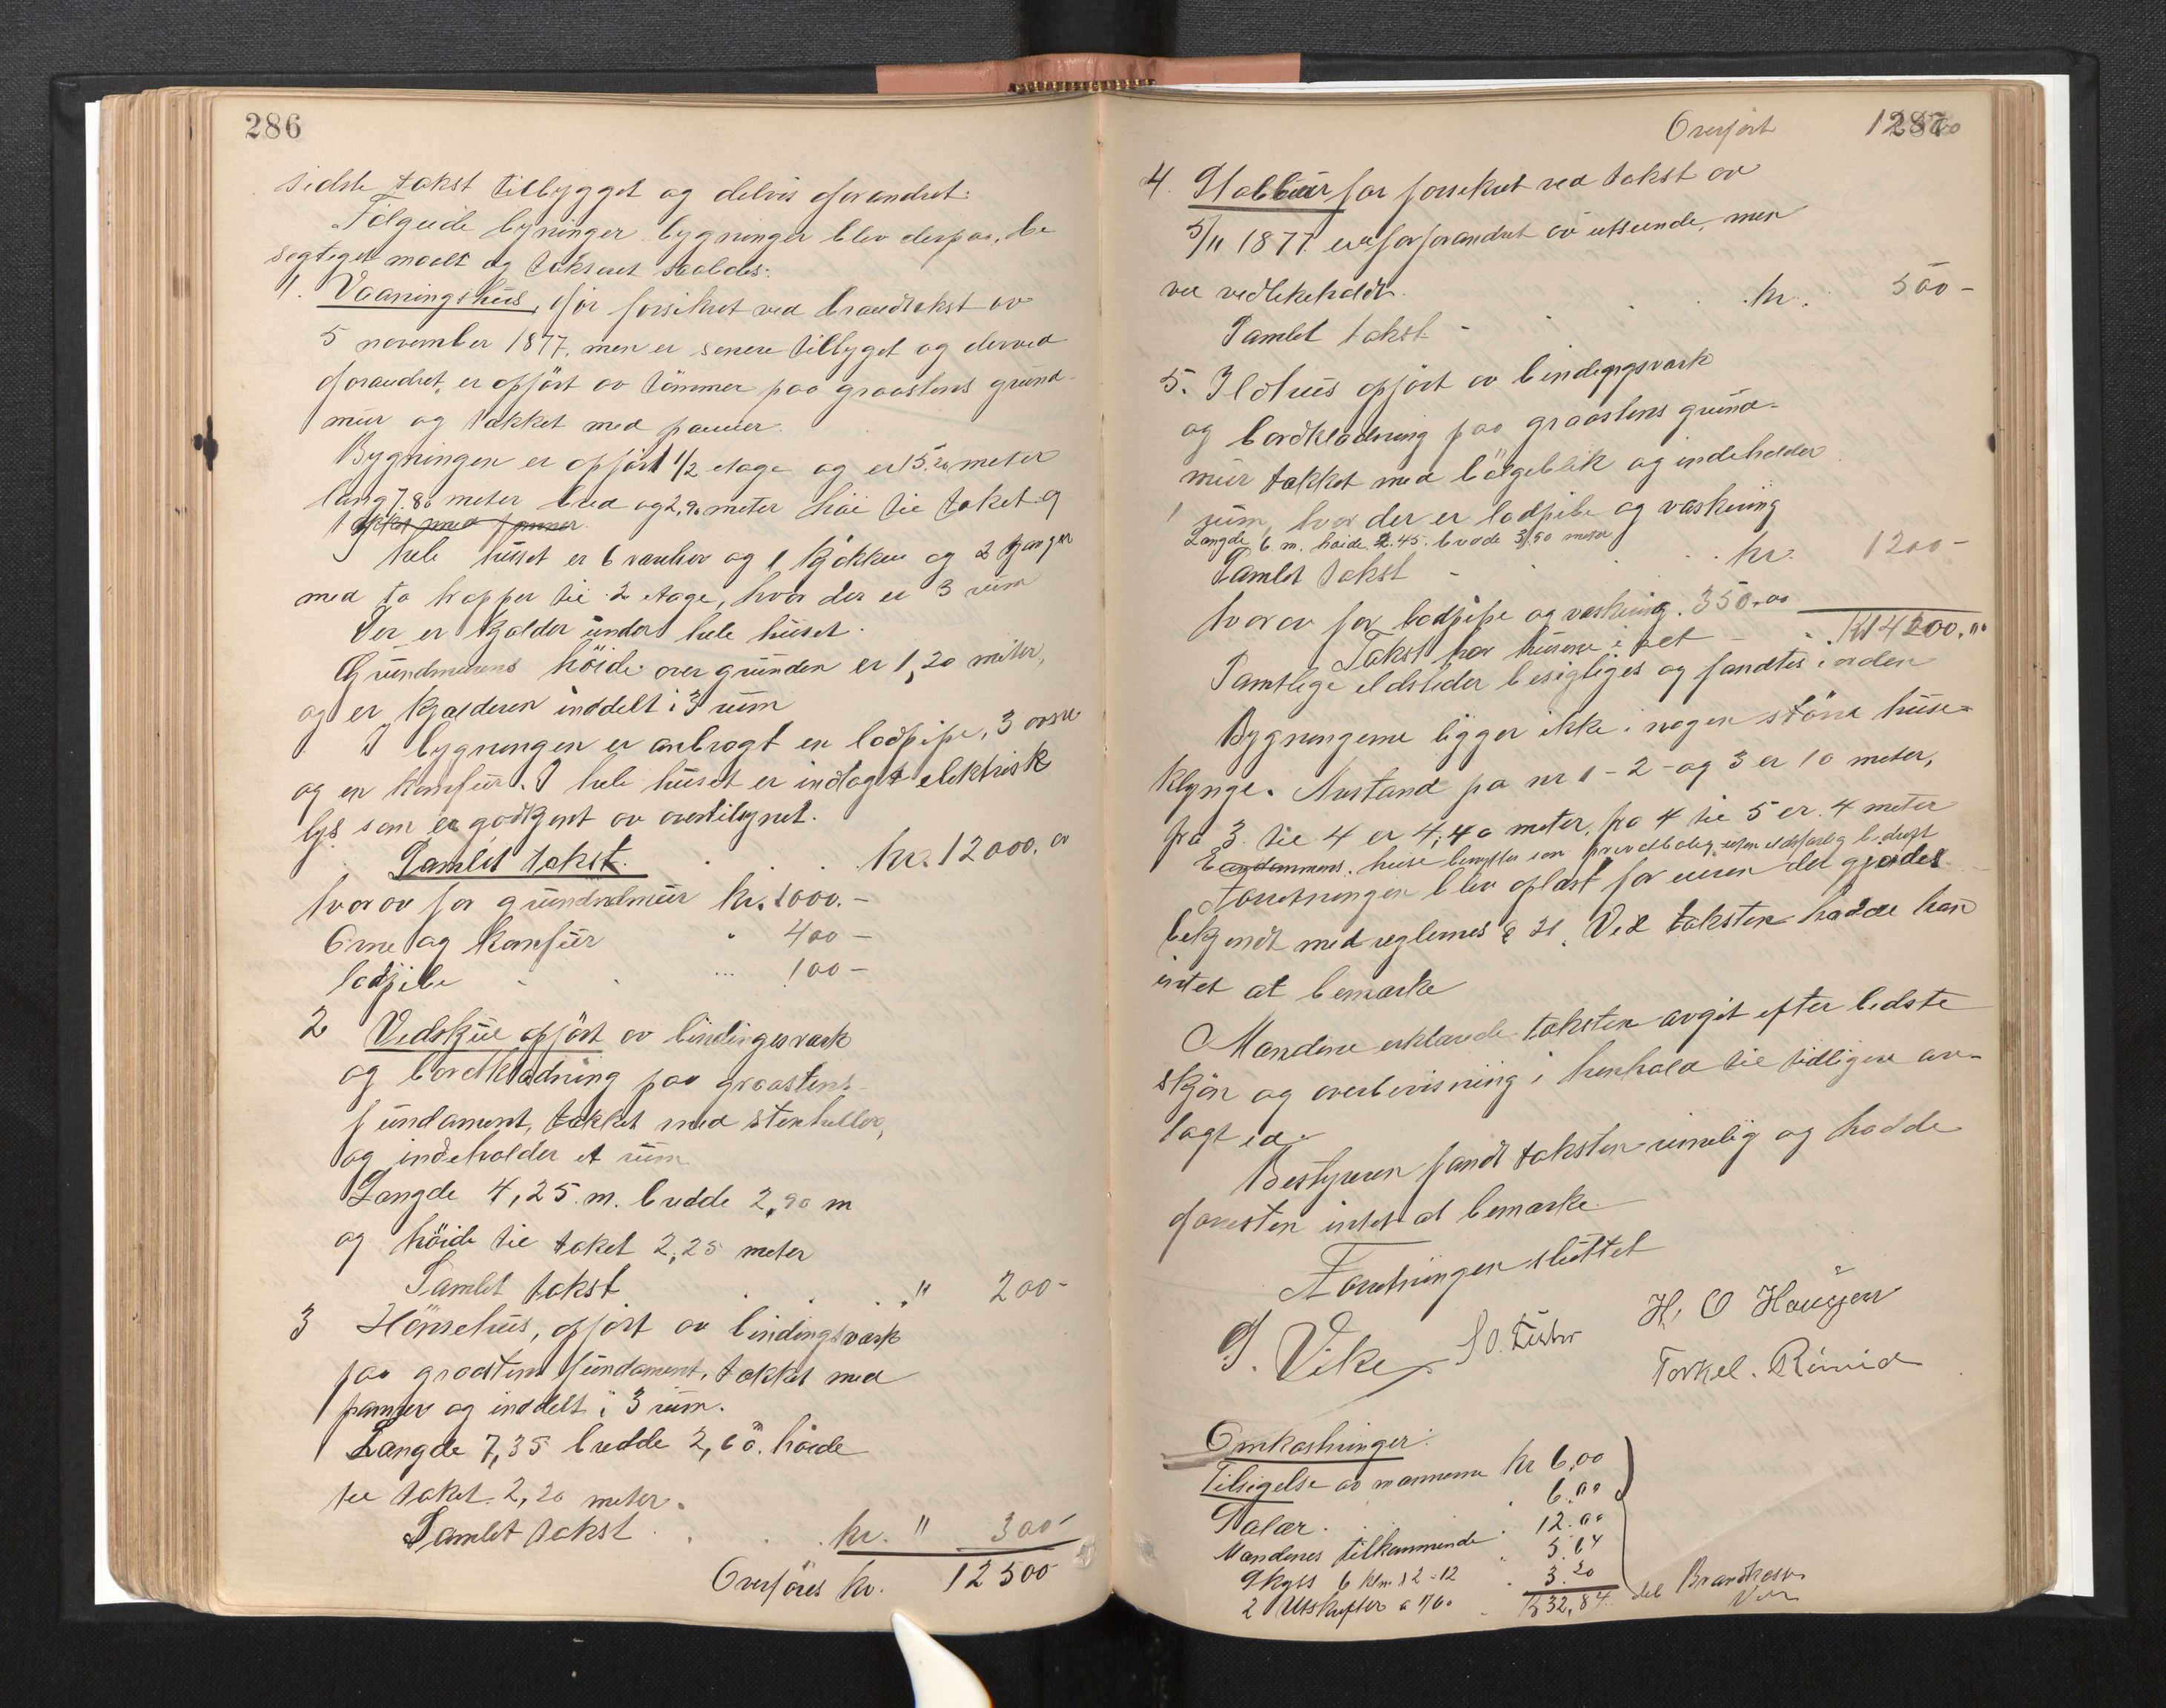 286
sidste takst tilbygget og delvis forandret.
Følgende bygninger bygninger blev derpaa, be
sigtiget maalt og takseret saaledes:
1. Vaaningshus, før forsikret ved brandtakst av
5 november 1877, men er senere tilbyget og derved
forandret, er opført av tømmer paa graastens grund-
mur og takket med panner.
Bygningen er opført 1 1/2 etage og er 15.20 meter
lang 7.80 meter bred og 2,90 meter høi til taket. I
takket med panner
hele huset er 6 værelser og 1 kjøkken og 2 ganger
med to trapper til 2 etage, hvor der er 3 rum
Der er kjælder under hele huset.
Grundmurens høide over grunden er 1,20 meter,
og er kjælderen inddelt i 3 rum
I bygningen er anbragt en lodpipe, 3 ovne
og en komfur. I hele huset er indlagt elektrisk
lys som er godkjent av overtilsynet.
Samlet takst. kr. 12000,00
hvorav for grundmur kr. 1000.-
Ovne og komfur " 400-
lodpibe 100-
2 Vedskjul opført av bindingsverk
og bordklædning paa graastens-
fundament, takket med stenheller,
og indeholder et rum
Længde 4,25 m. bredde 2,90 m
og høide til taket 2,25 meter
Samlet takst " 200-
3 Hønsehus, opført av bindingsværk
paa graastens fundament, takket med
panner og inddelt i 3 rum.
Længde 7,35 bredde 2,60. høide
til taket. 2,20 meter.
Samlet takst kr. " 300-
Overføres kr. 12500
287
Overført 12500
4. Stabbur før forsikret ved takst av
5/11 1877 uforandret av utseende, men
vel vedlikeholdt. kr. 500-
Samlet takst
5. Ildhus opført av bindingsværk
og bordklædning paa graastens grund-
mur takket med bølgeblik og indeholder
1 rum, hvor der er lodpibe og vaskning
Længde 6 m. høide 2.45. bredde 3,50 meter
Samlet takst kr. 1200-
hvorav for lodpipe og vaskning. 350.00
Takst for husene i alt kr 14200,00
Samtlige ildsteder besigtiges og fandtes i orden
Bygningerne ligger ikke i nogen større huse-
klynge. Avstand fra nr 1-2- og 3 er 10 meter,
fra 3 til 4 er 4,40 meter, fra 4 til 5 er 4 meter
Eiendommens huse benyttes som privatbolig uten ildsfarlig bedrift
Forretningen blev oplæst for eieren der gjordes
bekjendt med reglernes § 21. Ved taksten hadde han
intet at bemærke
Mændene erklærede taksten avgit efter bedste
skjøn og overbevisning i henhold til tidligere av-
lagt ed.
Bestyreren fandt taksten rimelig og hadde
foresten intet at bemærke.
Forretningen sluttet
Vike
H. O Haugen
Torkel.
Omkostninger:
Tilsigelse av mændene kr 6,00
6.00
Salær. 12.00
Mændenes tilkommende 5.64
Skyss 6 klm 12-12 3.20
2 Utskrifter a 1/60 kr 32,84. bet Brandkassen